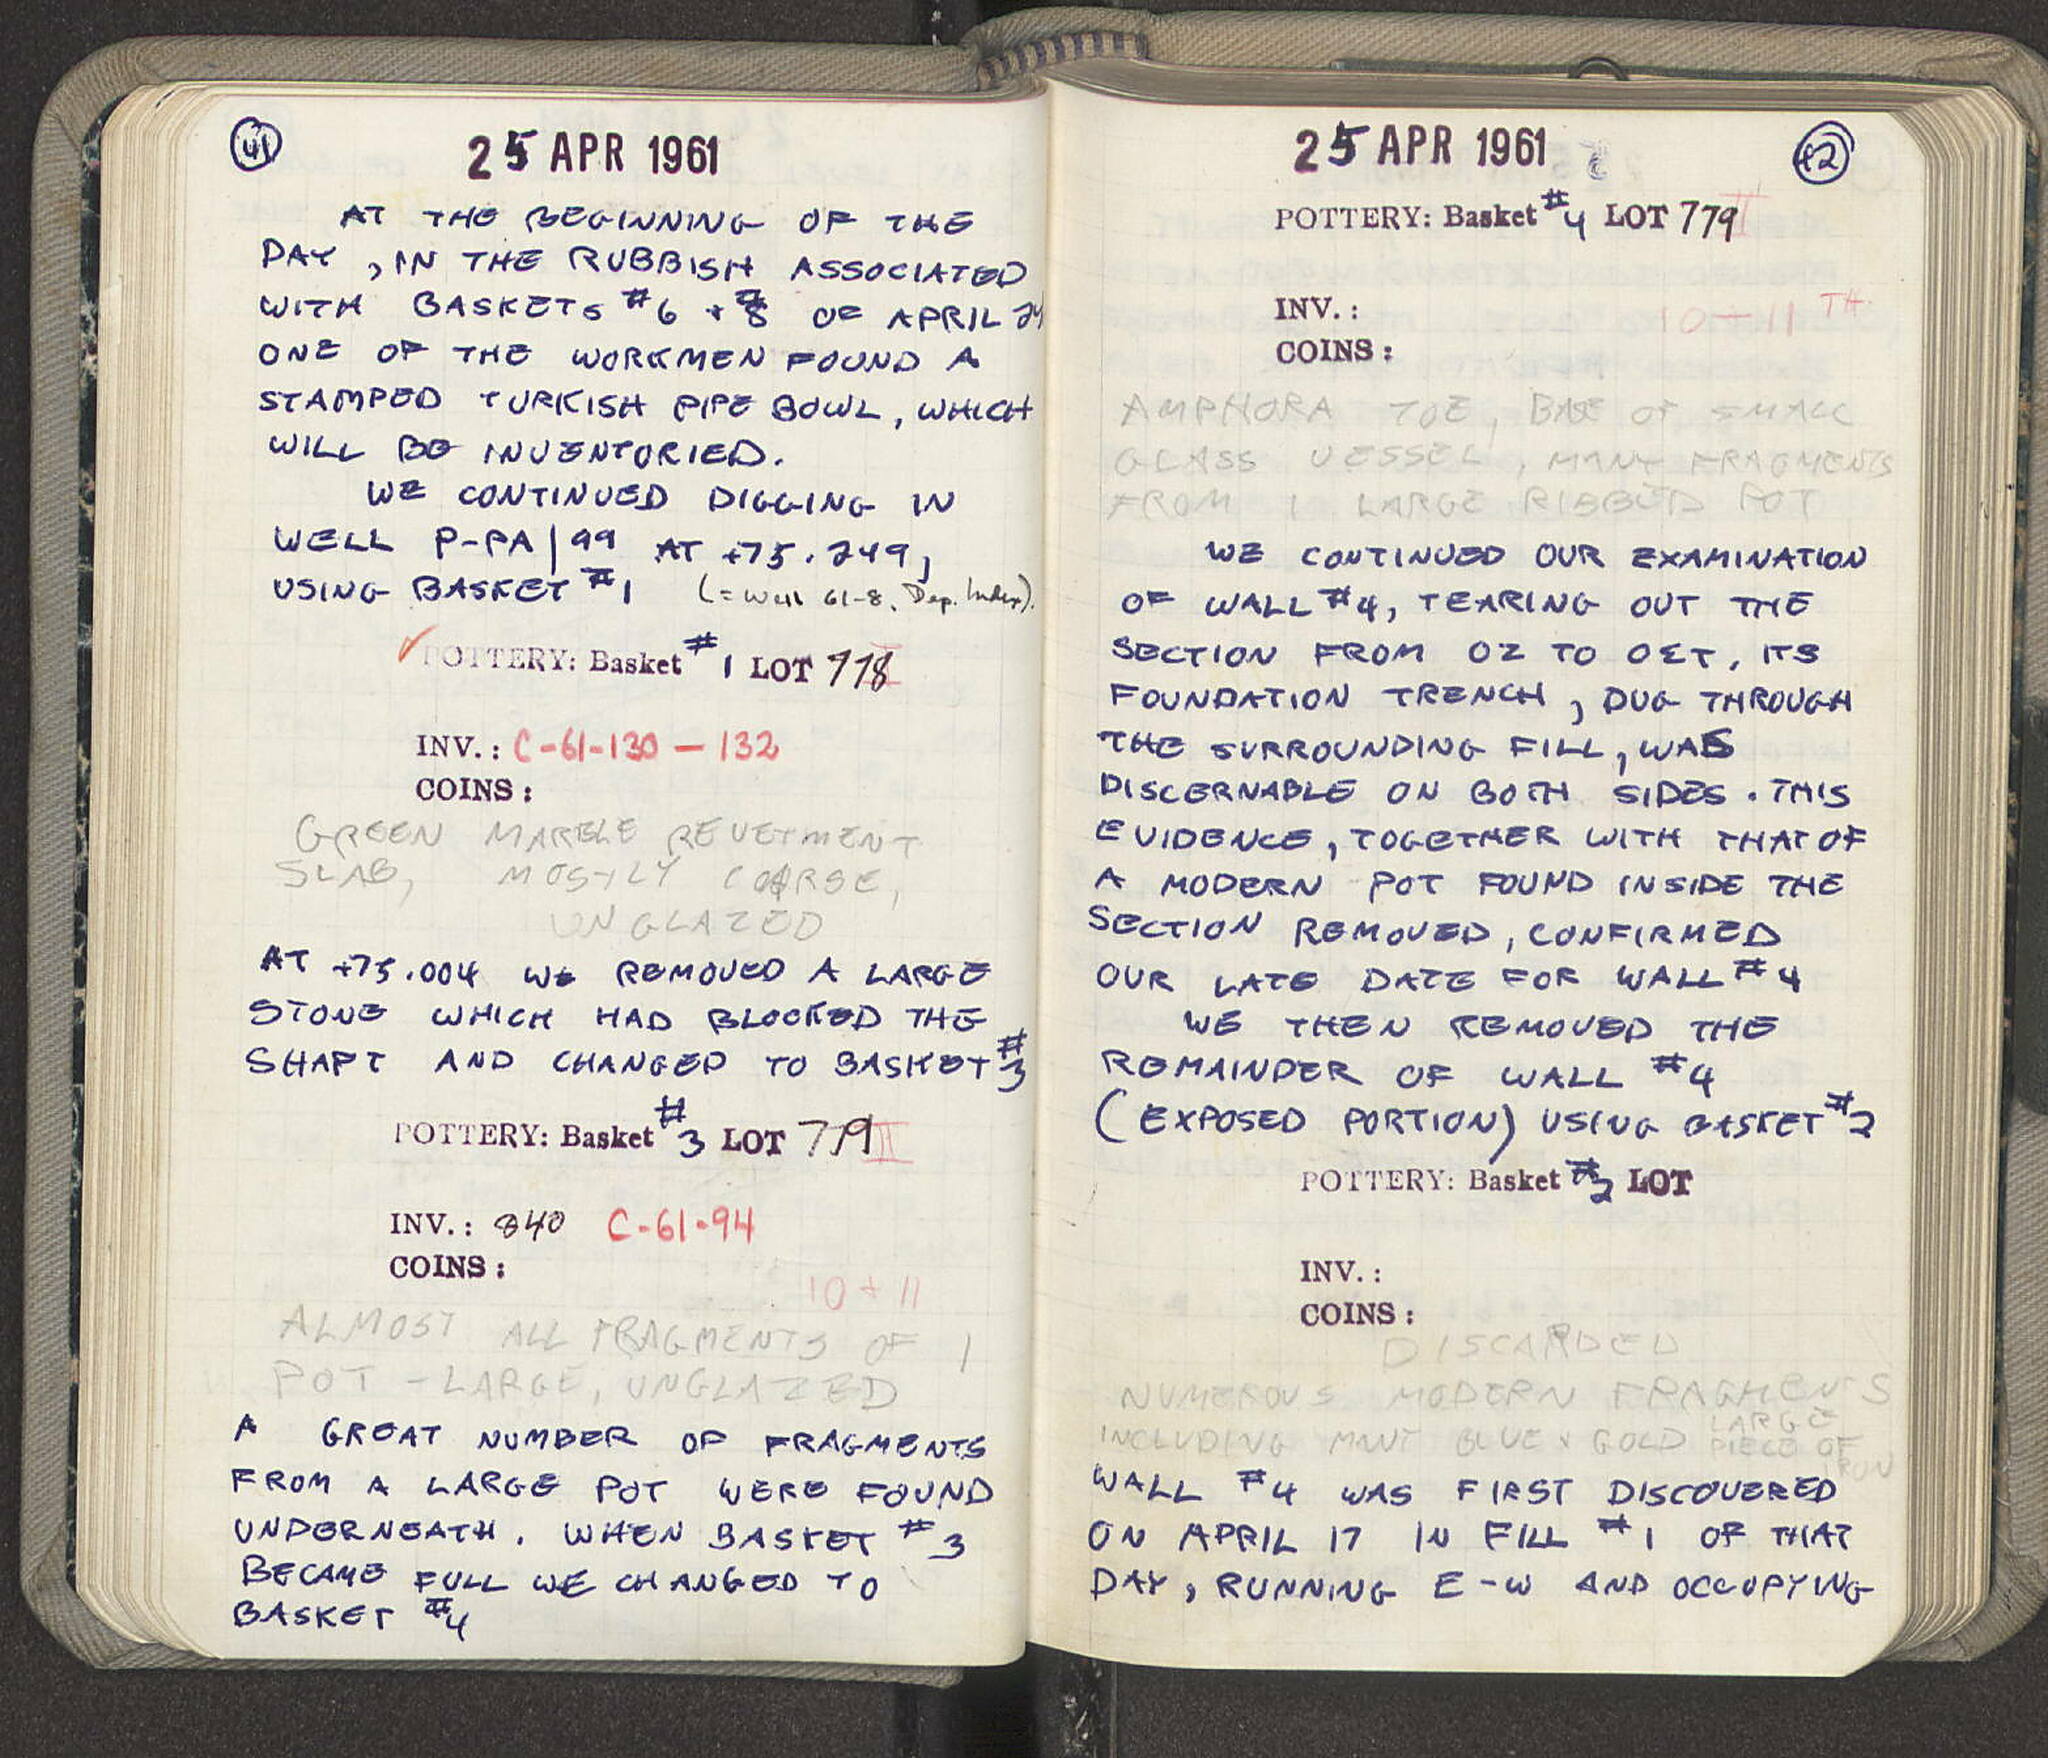 41
25 APR 1961
AT THE BEGINNING OF THE
DAY, IN THE RUBBISH ASSOCIATED
WITH BASKETS #6 + #8 OF APRIL 24
ONE OF THE WORKMEN FOUND A
STAMPED TURKISH PIPE BOWL, WHICH
WILL BE INVENTORIED.
WE CONTINUED DIGGING IN
WELL P-PA/99 AT +75.249,
USING BASKET #1 (= Well 61-8, Dep. Index).
POTTERY: Basket #1 LOT 778 II
INV.: C-61-130 — 132
COINS:
GREEN MARBLE REVETMENT
SLAB, MOSTLY COARSE,
UNGLAZED
AT +75.004 WE REMOVED A LARGE
STONE WHICH HAD BLOCKED THE
SHAFT AND CHANGED TO BASKET #3
POTTERY: Basket #3 LOT 779 II
INV.: 840 C-61-94
COINS:
10 + 11
ALMOST ALL FRAGMENTS OF 1
POT - LARGE, UNGLAZED
A GREAT NUMBER OF FRAGMENTS
FROM A LARGE POT WERE FOUND
UNDERNEATH. WHEN BASKET #3
BECAME FULL WE CHANGED TO
BASKET #4
42
25 APR 1961
POTTERY: Basket #4 LOT 779 II
INV.:
10-11 TH
COINS:
AMPHORA TOE, BASE OF SMALL
GLASS VESSEL, MANY FRAGMENTS
FROM 1 LARGE RIBBED POT
WE CONTINUED OUR EXAMINATION
OF WALL #4, TEARING OUT THE
SECTION FROM OZ TO OΣT. ITS
FOUNDATION TRENCH, DUG THROUGH
THE SURROUNDING FILL, WAS
DISCERNABLE ON BOTH SIDES. THIS
EVIDENCE, TOGETHER WITH THAT OF
A MODERN POT FOUND INSIDE THE
SECTION REMOVED, CONFIRMED
OUR LATE DATE FOR WALL #4
WE THEN REMOVED THE
REMAINDER OF WALL #4
(EXPOSED PORTION) USING BASKET #2
POTTERY: Basket #2 LOT
INV.:
COINS:
DISCARDED
NUMEROUS MODERN FRAGMENTS
INCLUDING BLUE + GOLD LARGE PIECE OF IRON
WALL #4 WAS FIRST DISCOVERED
ON APRIL 17 IN FILL #1 OF THAT
DAY, RUNNING E-W AND OCCUPYING